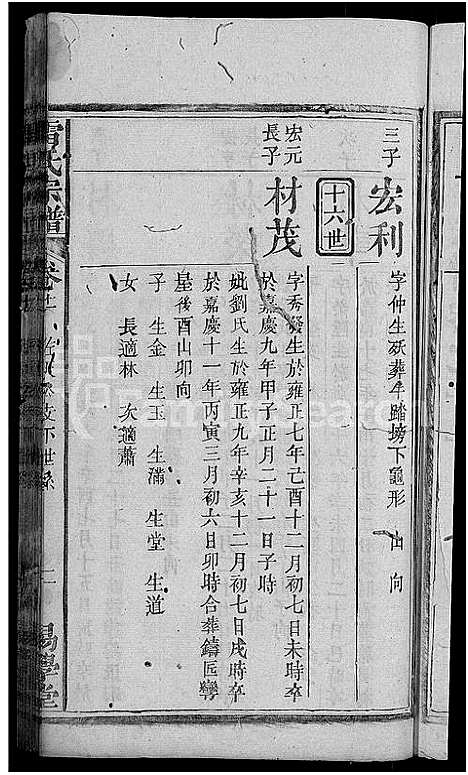 三子 宏利
字仲生歿葬牟塘塝下龜形 山 向
十六世
宏元長子 材茂
字秀發生於雍正七年己酉十二月初七日未時卒
於嘉慶九年甲子正月二十一日子時
妣劉氏生於雍正九年辛亥十二月初七日戌時卒
於嘉慶十一年丙寅三月初六日卯時合葬鑄匠彎
屋後酉山卯向
子 生金 生玉 生滿 生堂 生道
女 長適林 次適蕭
雷氏宗譜 卷十
下世系
易學堂